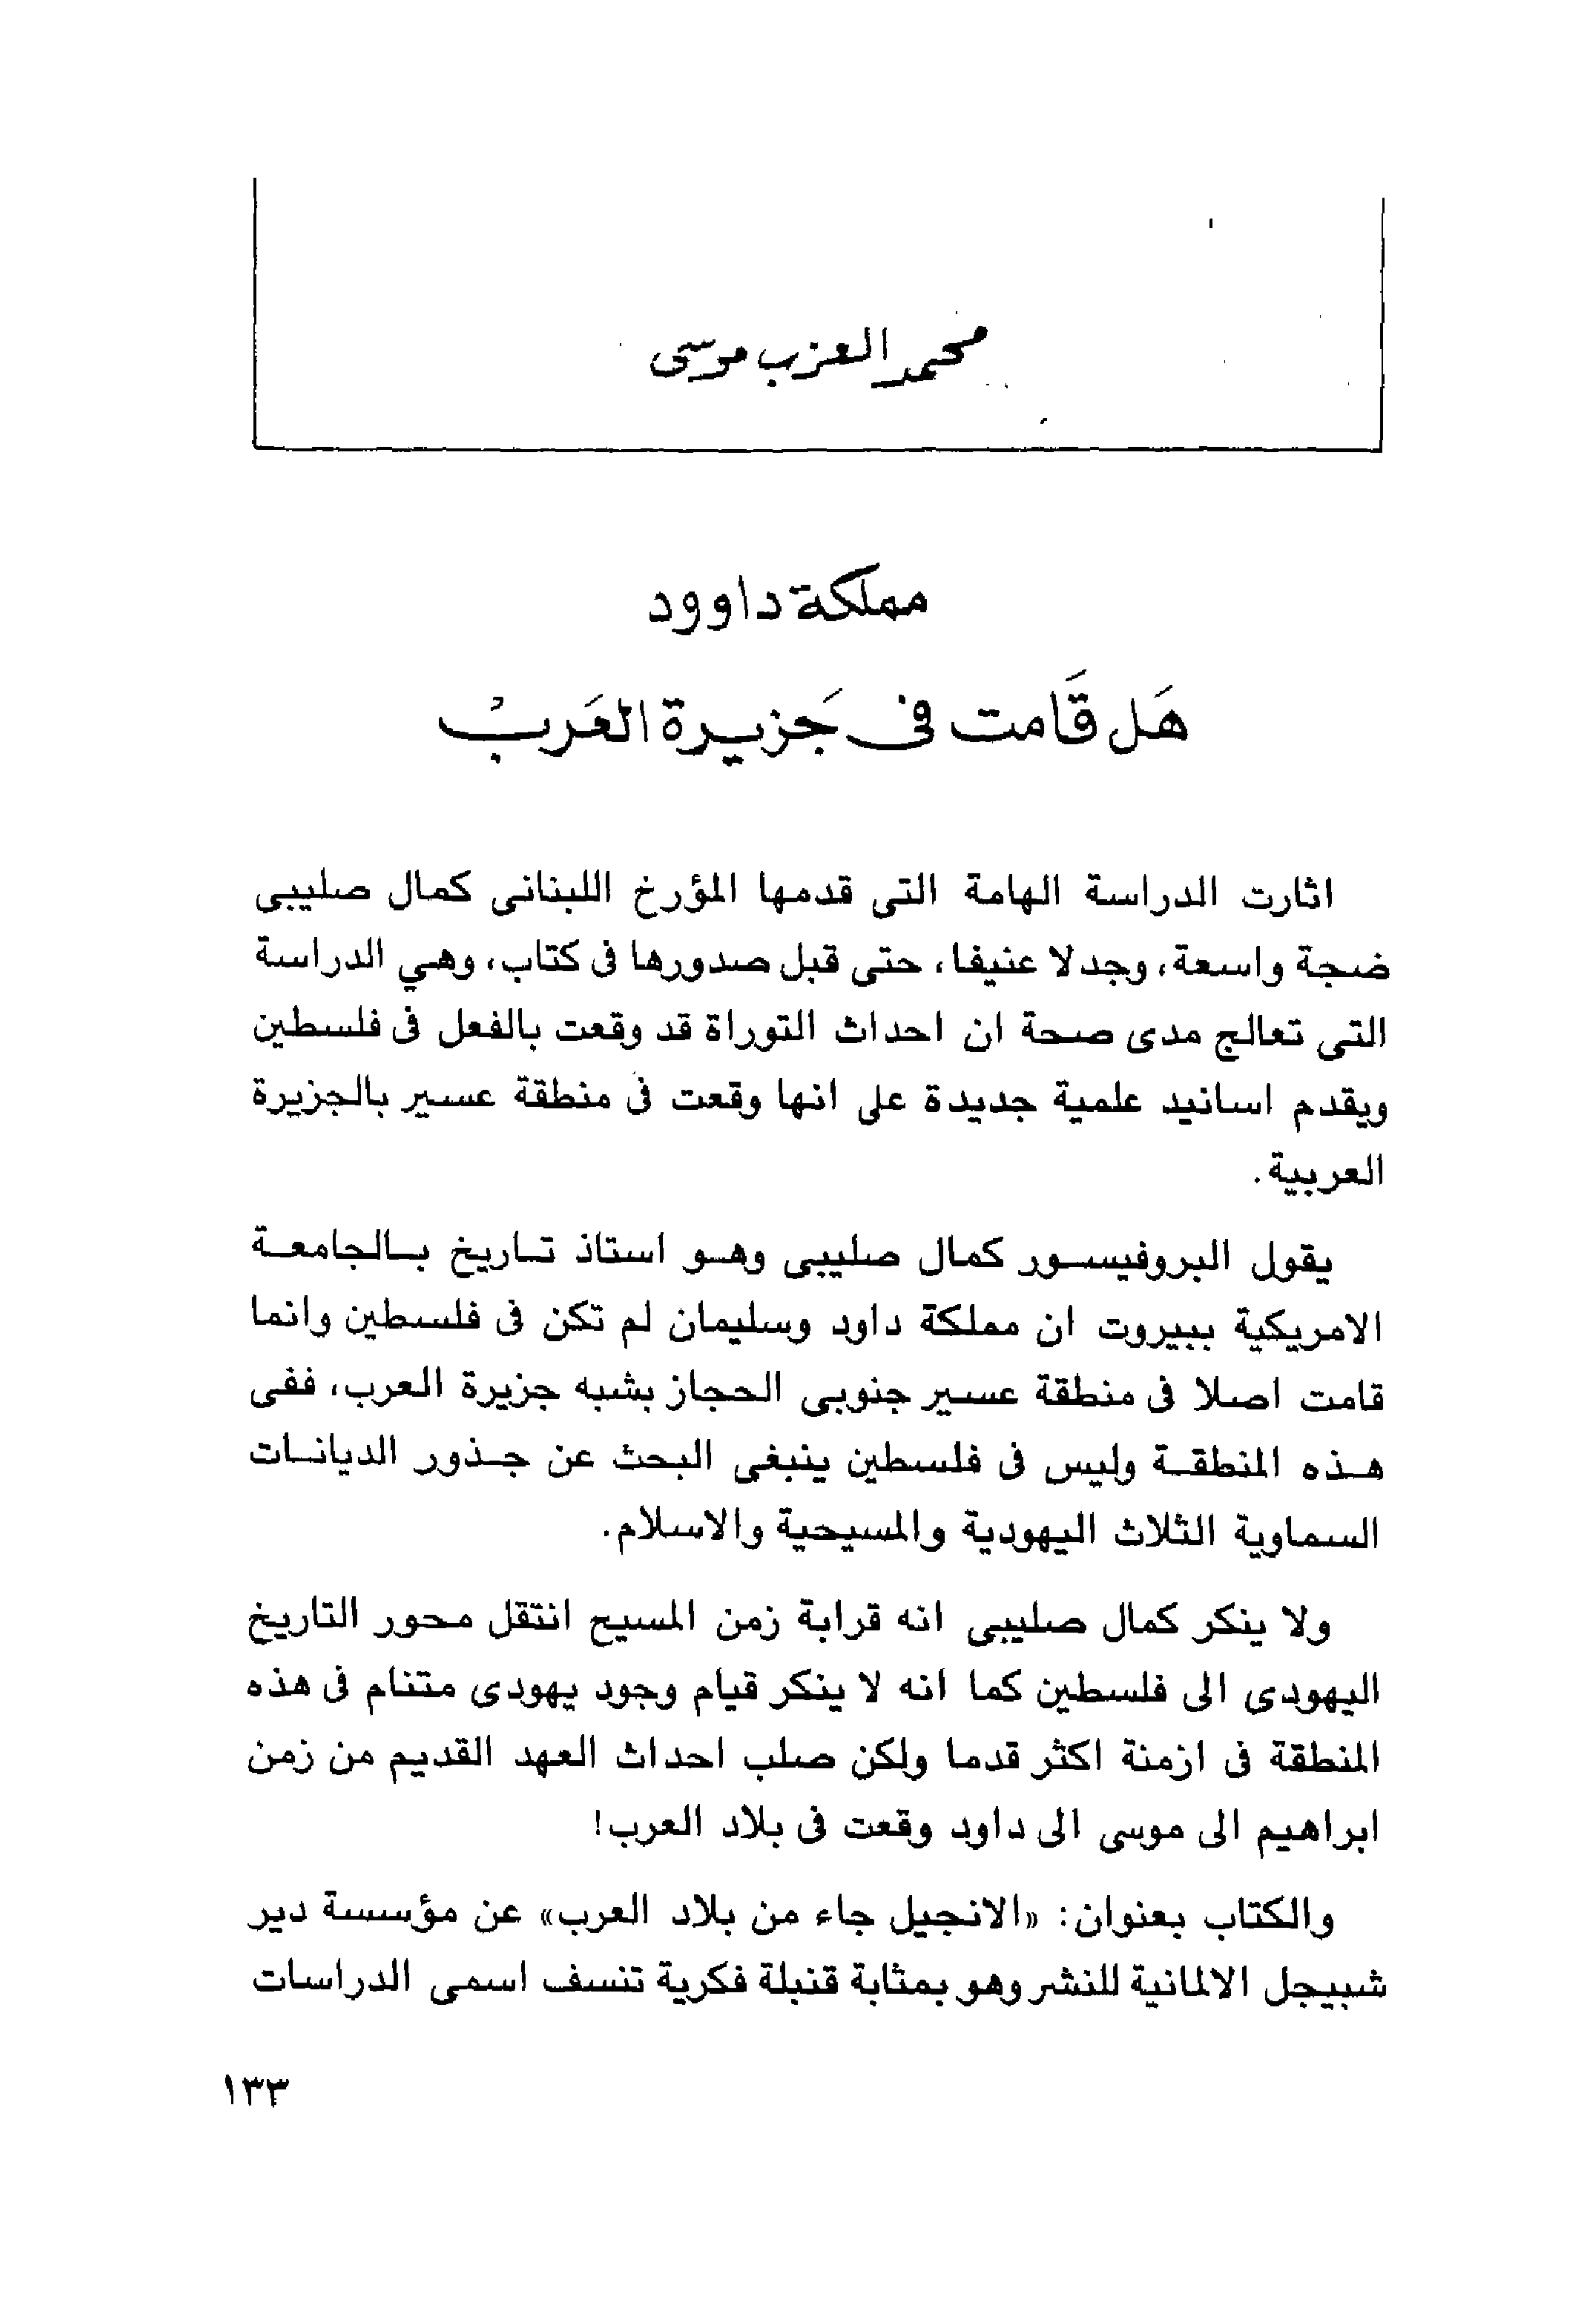 محمد العزب موسى
مملكة داوود
هَل قَامت فى جَزيرة العَربْ
اثارت الدراسة الهامة التى قدمها المؤرخ اللبنانى كمال صليبى
ضجة واسعة، وجدلا عنيفا، حتى قبل صدورها فى كتاب، وهي الدراسة
التى تعالج مدى صحة ان احداث التوراة قد وقعت بالفعل فى فلسطين
ويقدم اسانيد علمية جديدة على انها وقعت فى منطقة عسير بالجزيرة
العربية.
يقول البروفيسور كمال صليبى وهو استاذ تاريخ بالجامعة
الامريكية ببيروت ان مملكة داود وسليمان لم تكن فى فلسطين وانما
قامت اصلا فى منطقة عسير جنوبى الحجاز بشبه جزيرة العرب، ففى
هذه المنطقة وليس فى فلسطين ينبغى البحث عن جذور الديانات
السماوية الثلاث اليهودية والمسيحية والاسلام.
ولا ينكر كمال صليبى انه قرابة زمن المسيح انتقل محور التاريخ
اليهودى الى فلسطين كما انه لا ينكر قيام وجود يهودى متنام فى هذه
المنطقة فى ازمنة اكثر قدما ولكن صلب احداث العهد القديم من زمن
ابراهيم الى موسى الى داود وقعت فى بلاد العرب!
والكتاب بعنوان: «الانجيل جاء من بلاد العرب» عن مؤسسة دير
شبيجل الالمانية للنشر وهو بمثابة قنبلة فكرية تنسف اسمى الدراسات
١٣٣